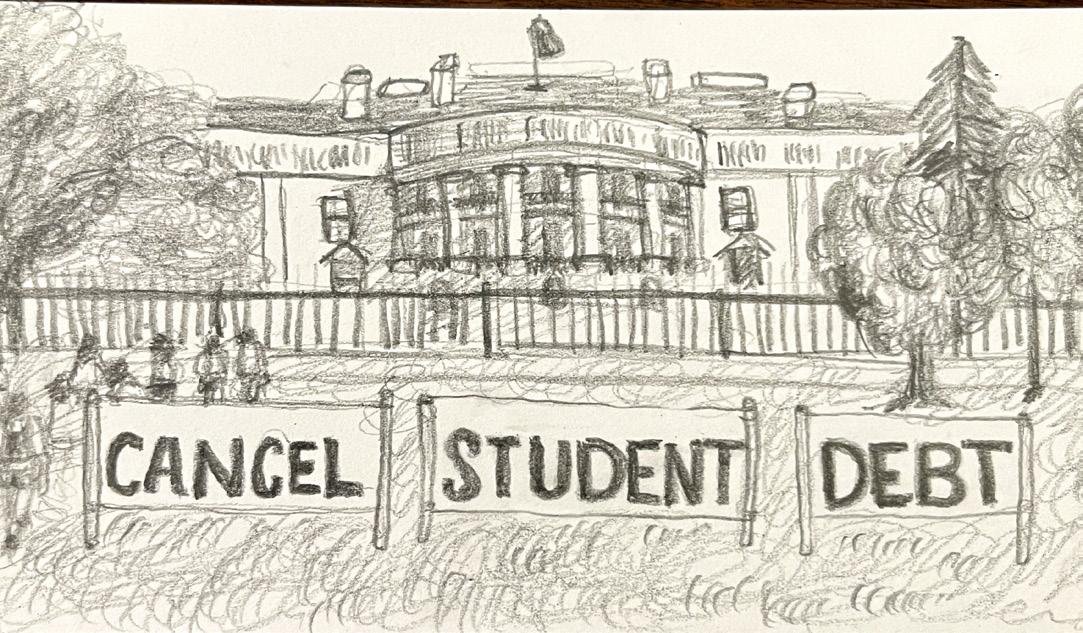 CANCEL STUDENT DEBT